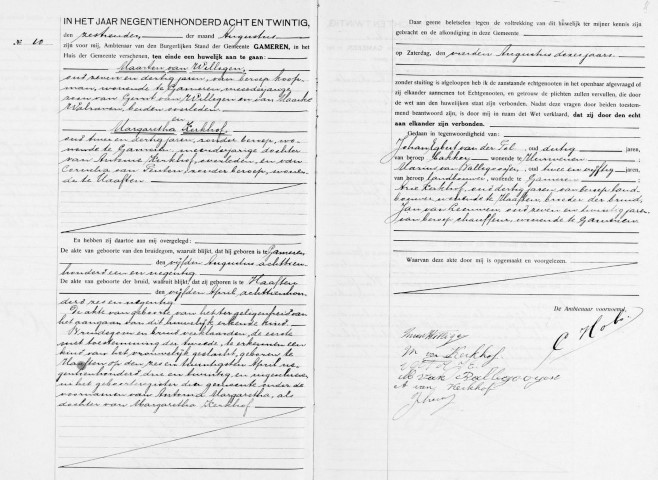 IN HET JAAR NEGENTIENHONDERD ACHT EN TWINTIG,
den zestienden, der maand Augustus
No 10
zijn voor mij, Ambtenaar van den Burgerlijken Stand der Gemeente GAMEREN, in het
Huis der Gemeente verschenen, ten einde een huwelijk aan te gaan:
Maarten van Willigen,
oud zeven en dertig jaren, van beroep koop-
man, wonende te Gameren, meerderjarige
zoon van Gerrit van Willigen en van Maaike
beiden overleden
en
Margaretha Kerkhof,
oud twee en dertig jaren, zonder beroep, wo-
nende te Gameren, meerderjarige dochter
van Antonie Kerkhof, overleden, en van
Cornelia van zonder beroep, wonen-
de te Haaften
En hebben zij daartoe aan mij overgelegd:
De akte van geboorte van den bruidegom, waaruit blijkt, dat hij geboren is te Gameren,
den vijfden Augustus achttien-
honderd een en negentig
De akte van geboorte der bruid, waaruit blijkt, dat zij geboren is te Haaften
den vijfden April, achttienhon-
derd zes en negentig
De akte van geboorte van het ter gelegenheid van
het aangaan van dit huwelijk erkende kind.
Bruidegom en bruid verklaarden, de eerste
met toestemming der tweede, te erkennen een
kind van het vrouwelijk geslacht, geboren te
Haaften op den zes en twintigsten April ne-
gentienhonderd drie en twintig, en ingeschreven
in het geboorteregister dier gemeente onder de
voornamen van Antonia Margaretha, als
dochter van Margaretha Kerkhof
Daar geene beletselen tegen de voltrekking van dit huwelijk ter mijner kennis zijn
gebracht en de afkondiging in deze Gemeente
op Zaterdag, den vierden Augustus dezes jaars.
zonder stuiting is afgeloopen heb ik de aanstaande echtgenooten in het openbaar afgevraagd of
zij elkander aannemen tot Echtgenooten, en getrouw de plichten zullen vervullen, die door
de wet aan den huwelijken staat zijn verbonden. Nadat deze vragen door beiden toestem-
mend beantwoord zijn, is door mij in naam der Wet verklaard, dat zij door den echt
aan elkander zijn verbonden.
Gedaan in tegenwoordigheid van:
van der Tol, oud dertig jaren,
van beroep bakker, wonende te
van Balligooijen, oud twee en vijftig jaren,
van beroep landbouwer, wonende te Gameren;
Arie Kerkhof, oud dertig jaren, van beroep land-
bouwer, wonende te Haaften, broeder der bruid;
Jan van Leeuwen, oud zeven en twintig jaren,
van beroep chauffeur, wonende te Gameren
Waarvan deze akte door mij is opgemaakt en voorgelezen.
De Ambtenaar voornoemd,
M van Kerkhof.
van Balligooyen
A van Kerkhof